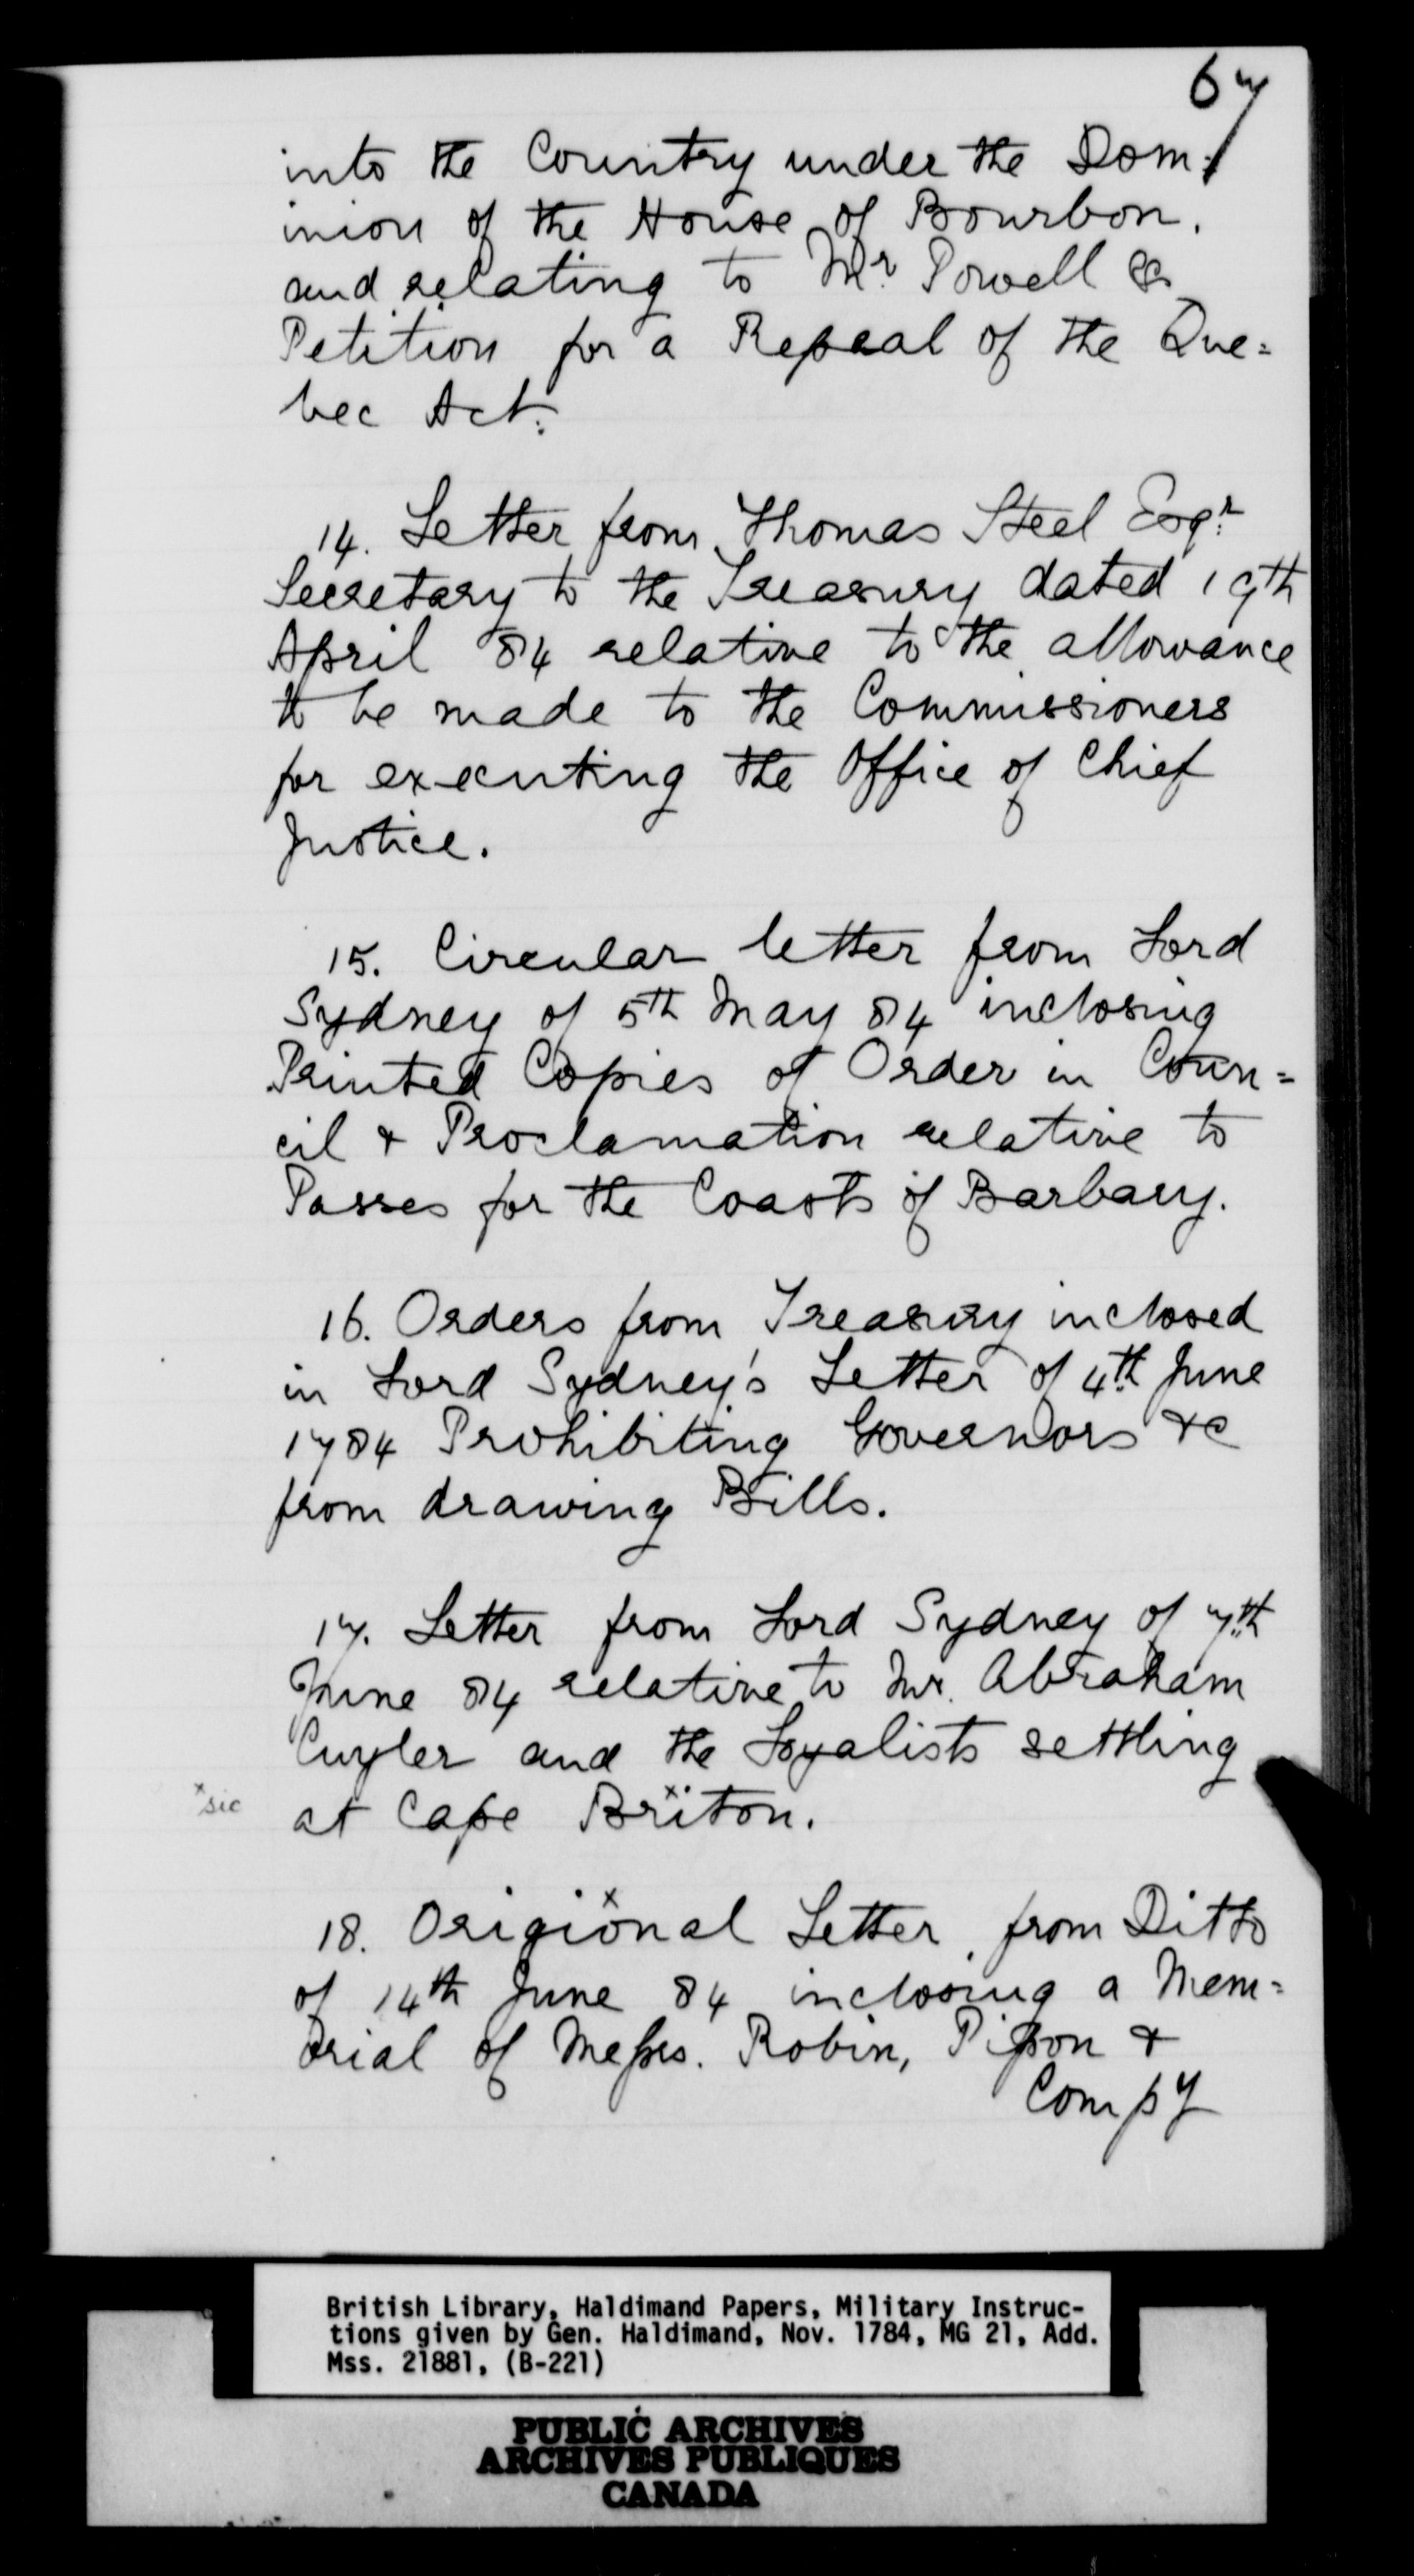 67
into the Country under the Dom-
inion of the House of Bourbon.
and relating to Mr. Powell &
Petition for a Repeal of the Que=
bec Act.
14. Letter from Thomas Steel Esqr.
Secretary to the Treasury dated 19th
April 84 relative to the allowance
to be made to the Commissioners
for executing the Office of Chief
Justice.
15. Circular letter from Lord
Sydney of 5th May 84 inclosing
Printed Copies of Order in Coun=
cil & Proclamation relative to
Passes for the Coasts of Barbary.
16. Orders from Treasury inclosed
in Lord Sydney's Letter of 4th June
1784 Prohibiting Governors &c
from drawing Bills.
17. Letter from Lord Sydney of 7th
June 84 relative to Mr. Abraham
Cuyler and the Loyalists settling
x sic at Cape Briton. x
18. Origional x Letter from Ditto
of 14th June 84 inclosing a Mem=
orial of Messrs. Robin, Pipon &
Compy
British Library, Haldimand Papers, Military Instruc-
tions given by Gen. Haldimand, Nov. 1784, MG 21, Add.
Mss. 21881, (B-221)
PUBLIC ARCHIVES
ARCHIVES PUBLIQUES
CANADA